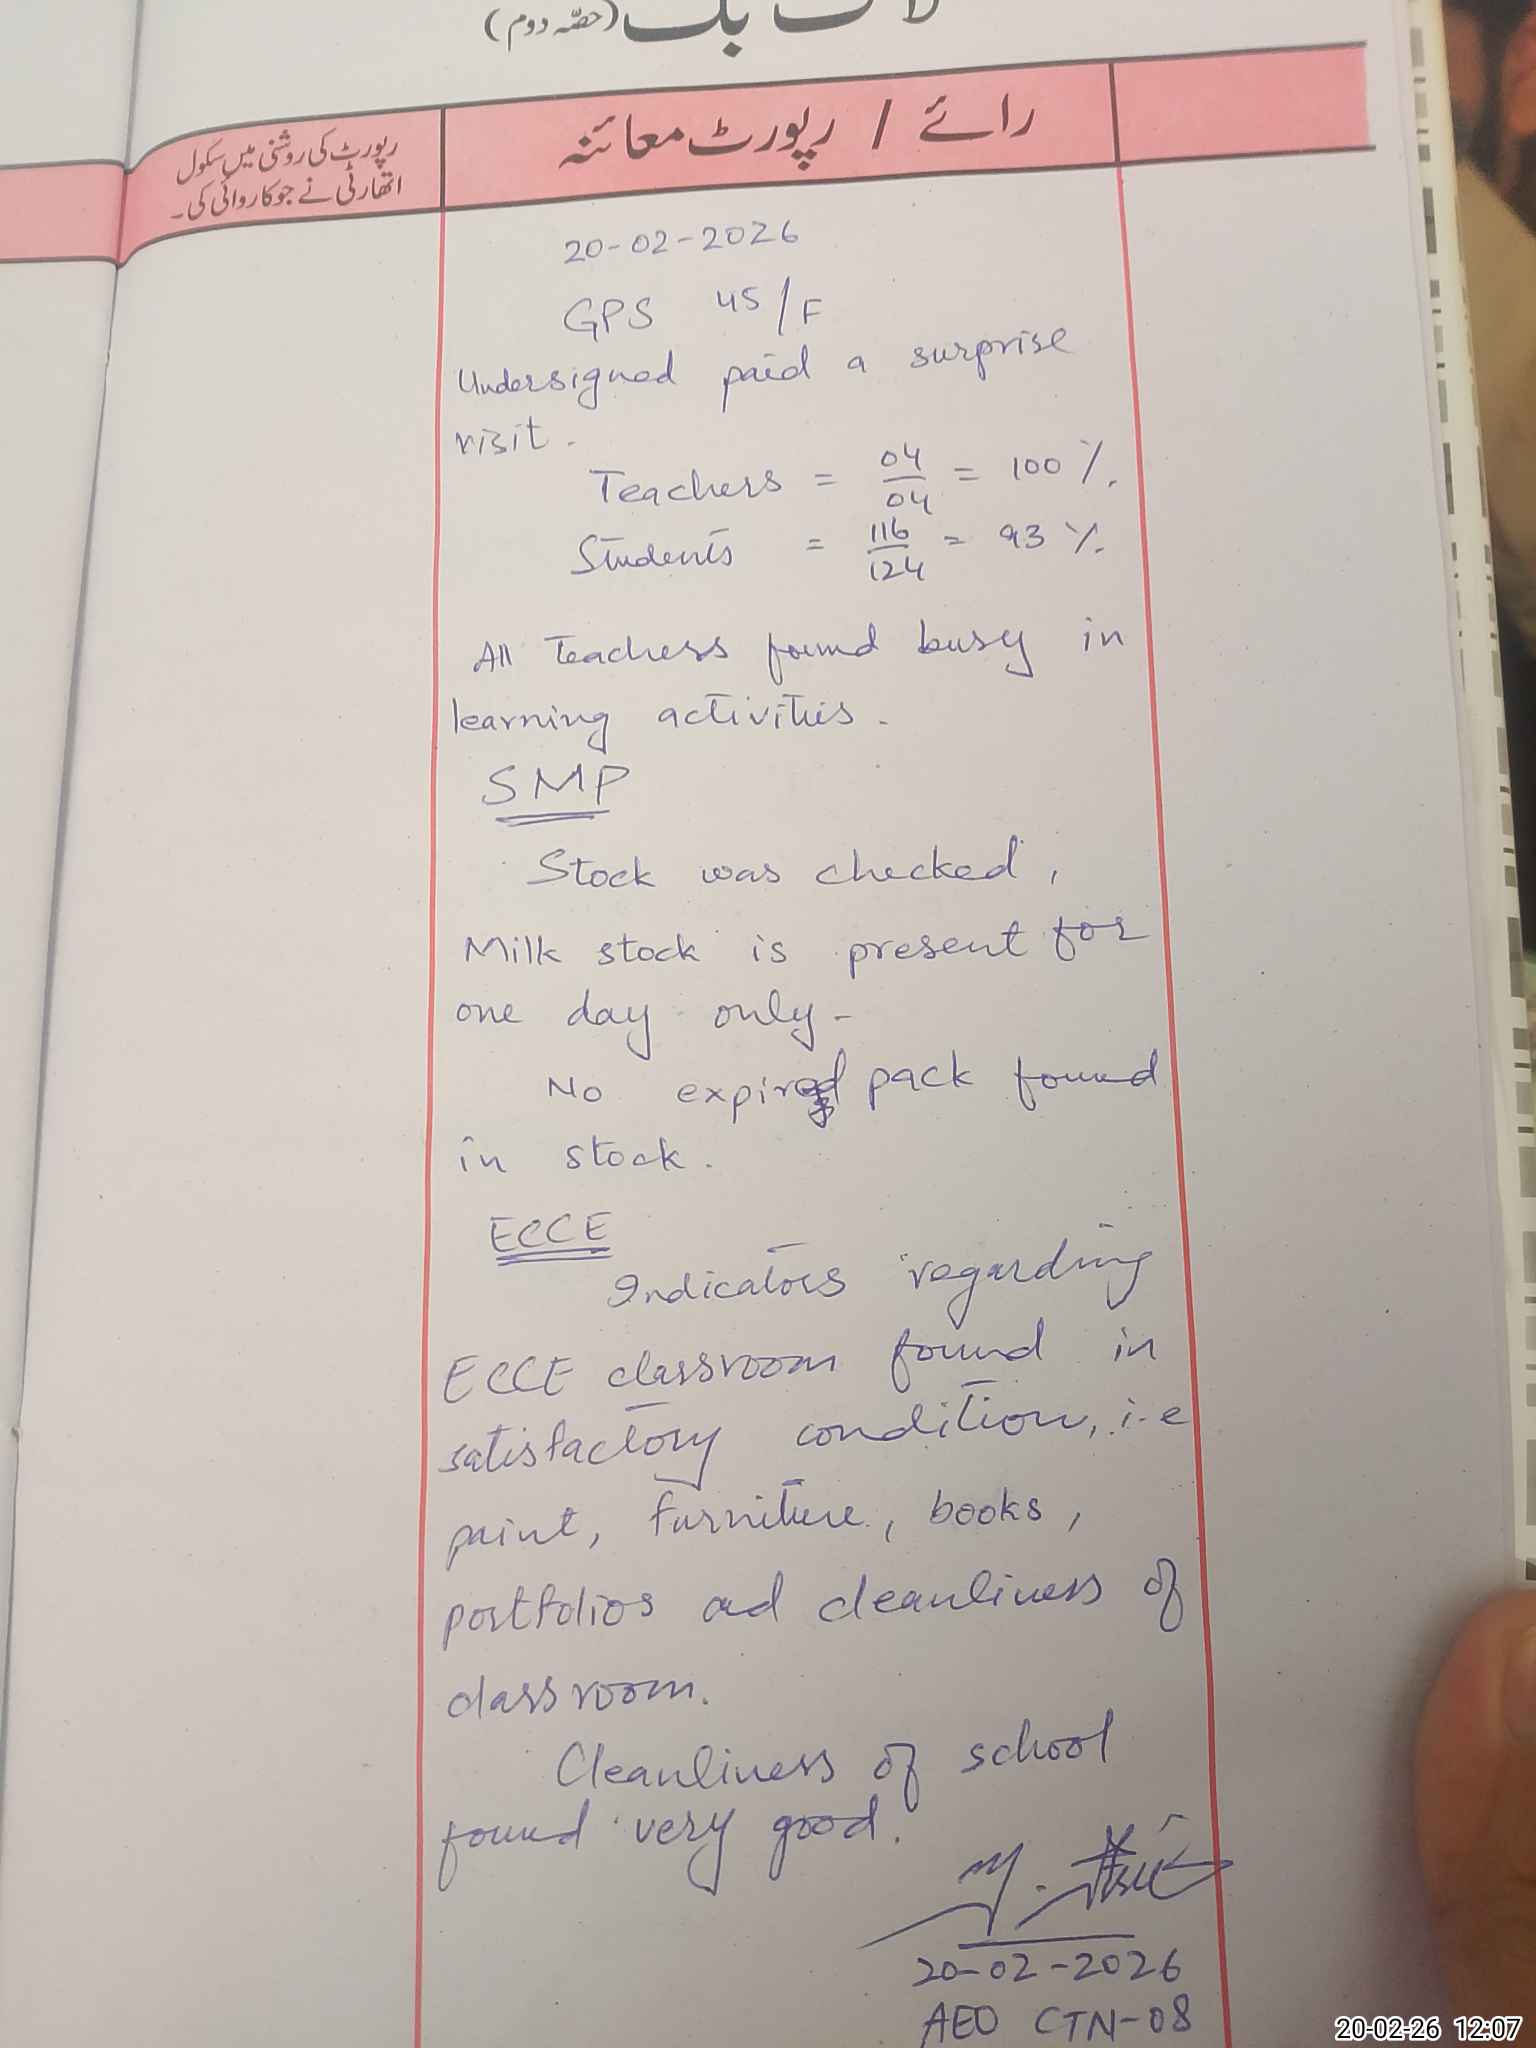 لاگ بک (حصّہ دوم)
رائے / رپورٹ معائنہ
رپورٹ کی روشنی میں سکول
اتھارٹی نے جو کاروائی کی۔
20-02-2026
GPS 45/F
Undersigned paid a surprise
visit.
Teachers = 04/04 = 100 %.
Students = 116/124 = 93 %.
All Teachers found busy in
learning activities.
SMP
Stock was checked,
Milk stock is present for
one day only-
No expired pack found
in stock.
ECCE
Indicators regarding
ECCE classroom found in
satisfactory condition, i.e
paint, furniture, books,
portfolios ad cleanliness of
classroom.
Cleanliness of school
found very good.
20-02-2026
AEO CTN-08
20-02-26 12:07